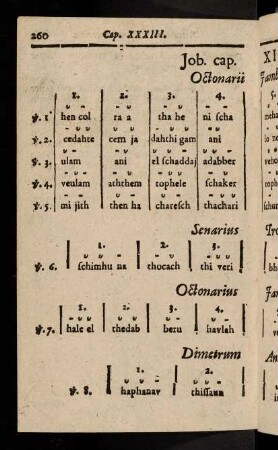 260 Cap. XXXIII.
Job. cap.
Octonarii
1. 2. 3. 4.
℣. 1 hen col ra a tha he ni scha
℣. 2. cedahte cem ja dahthi gam ani
℣. 3. ulam ani el schaddaj adabber
℣. 4. veulam aththem tophele schaker
℣. 5. mi jith then ha charesch thachari
Senarius
1. 2. 3.
℣. 6. schimhu na thocach thi veri
Octonarius
1. 2. 3. 4.
℣. 7. hale el thedab beru havlah
Dimetrum
1. 2.
℣. 8. haphanav thissaun